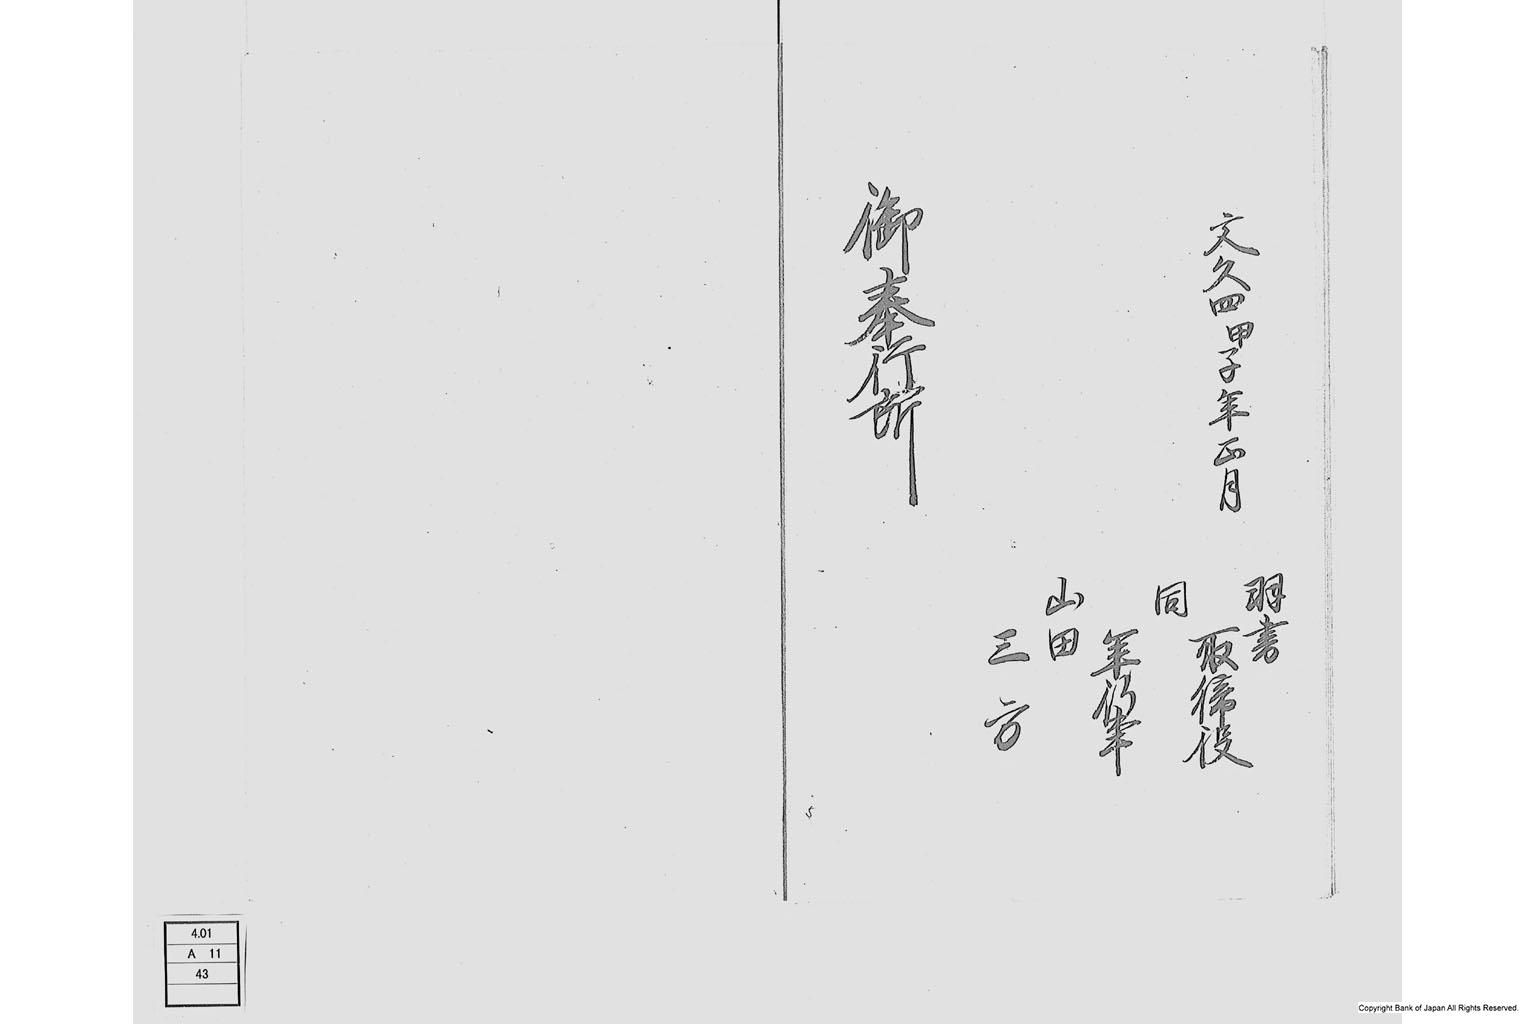 文久四甲子年正月
羽書
取締役
同
年行事
山田
三方
御奉行所
4.01
A 11
43
Copyright Bank of Japan All Rights Reserved.